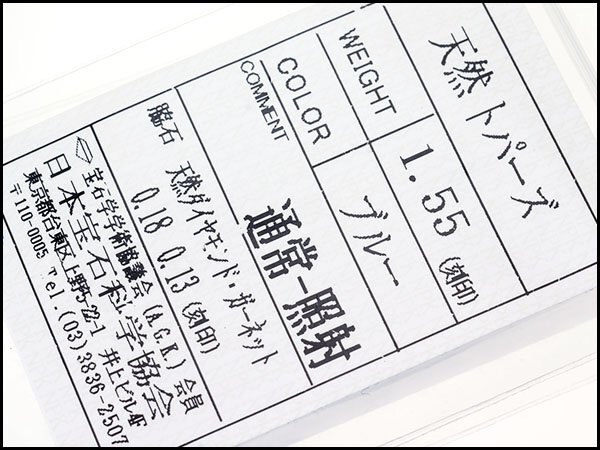 天然トパーズ
WEIGHT 1.55 (刻印)
COLOR ブルー
COMMENT
通常-照射
脇石 天然ダイヤモンド・ガーネット
0.18 0.13 (刻印)
宝石学学術協議会(A.G.K.)会員
日本宝石科学協会
東京都台東区上野5-22-1 井上ビル4F
〒110-0005 Tel.(03)3836-2507